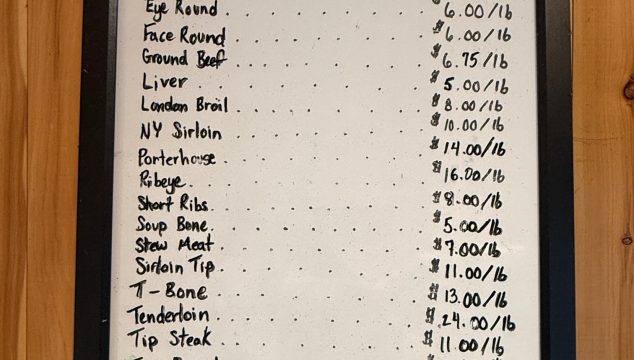 Eye Round . . . . . . . . $6.00/lb
Face Round . . . . . . . . $6.00/lb
Ground Beef . . . . . . . . $6.75/lb
Liver . . . . . . . . $5.00/lb
London Broil . . . . . . . . $8.00/lb
NY Sirloin . . . . . . . . $10.00/lb
Porterhouse . . . . . . . . $14.00/lb
Ribeye . . . . . . . . $16.00/lb
Short Ribs . . . . . . . . $8.00/lb
Soup Bone . . . . . . . . $5.00/lb
Stew Meat . . . . . . . . $7.00/lb
Sirloin Tip . . . . . . . . $11.00/lb
T-Bone . . . . . . . . $13.00/lb
Tenderloin . . . . . . . . $24.00/lb
Tip Steak . . . . . . . . $11.00/lb